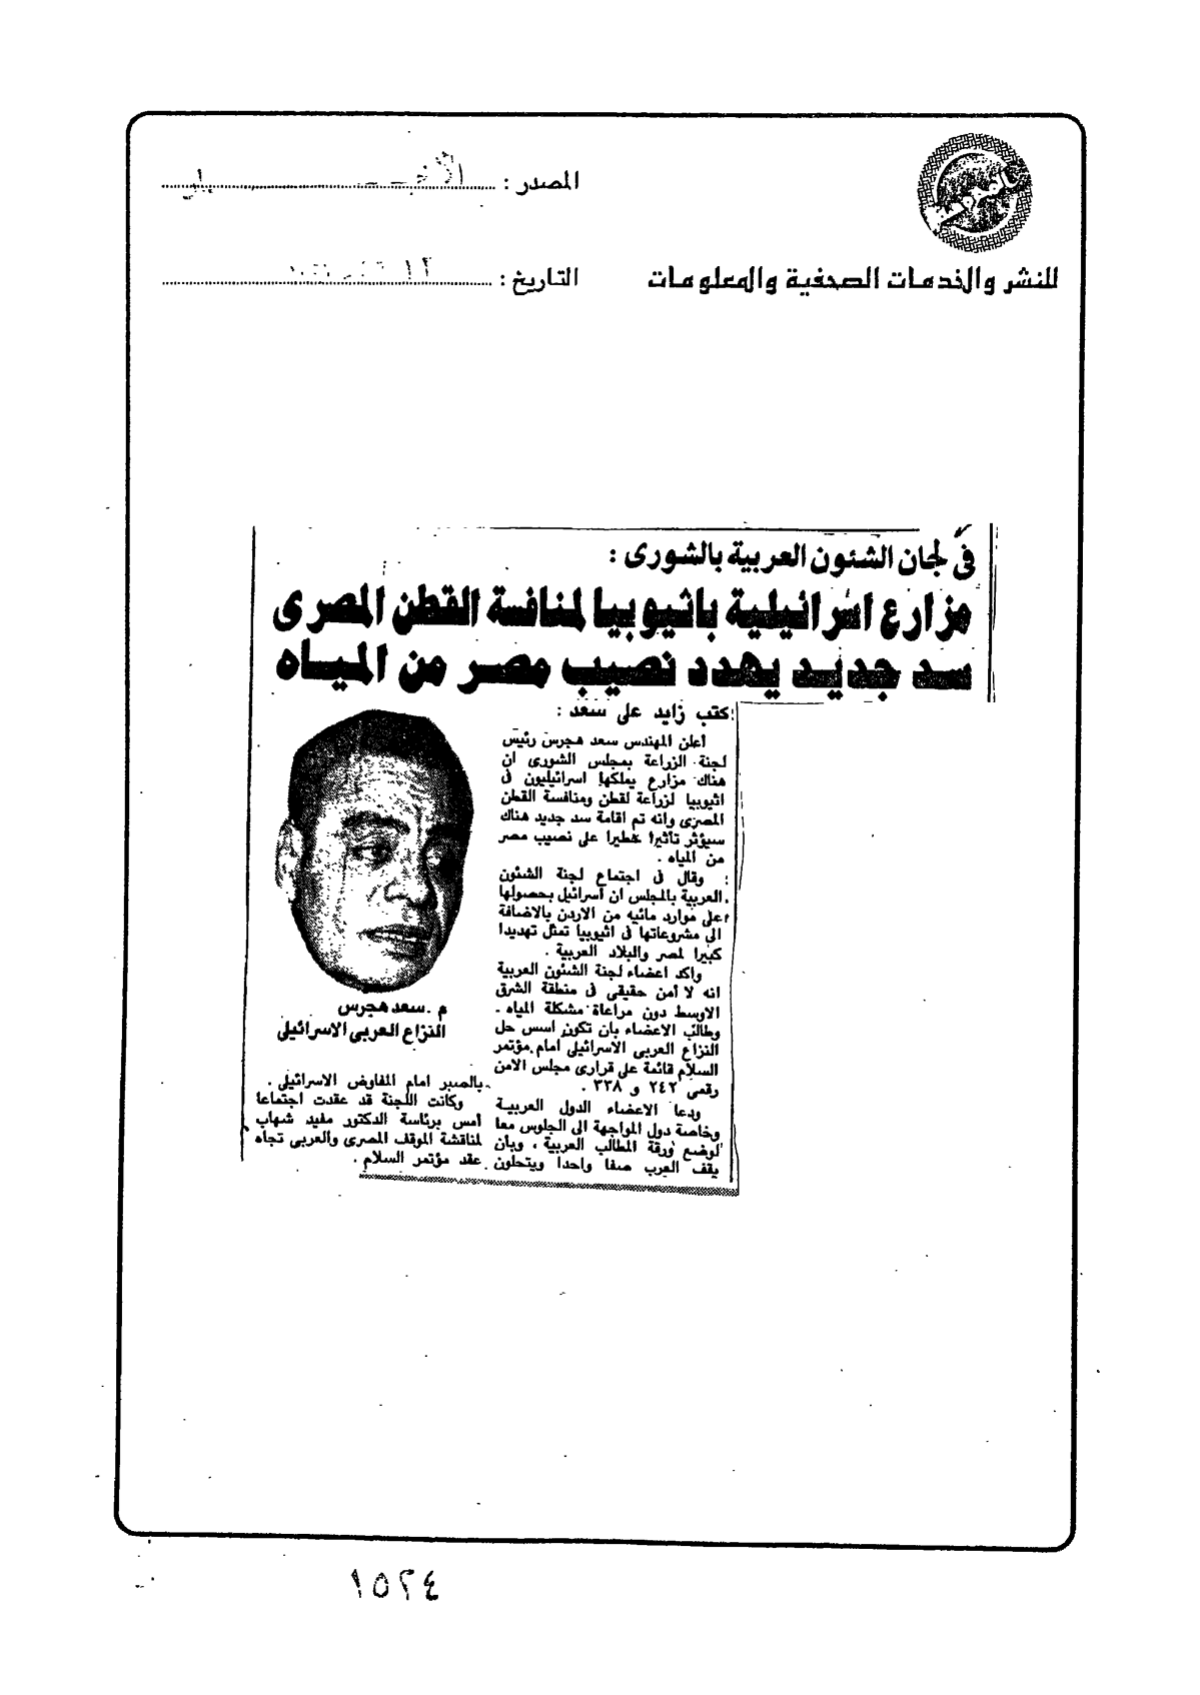 المصدر :
للنشر والخدمات الصحفية والمعلومات
التاريخ :
فى لجان الشئون العربية بالشورى :
مزارع اسرائيلية باثيوبيا لمنافسة القطن المصرى
سد جديد يهدد نصيب مصر من المياه
كتب زايد على سعد :
أعلن المهندس سعد هجرس رئيس
لجنة الزراعة بمجلس الشورى ان
هناك مزارع يملكها اسرائيليون فى
اثيوبيا لزراعة لقطن ومنافسة القطن
المصرى وانه تم اقامة سد جديد هناك
سيؤثر تأثيرا خطيرا على نصيب مصر
من المياه .
وقال فى اجتماع لجنة الشئون
العربية بالمجلس ان اسرائيل بحصولها
على موارد مائيه من الاردن بالاضافة
الى مشروعاتها فى اثيوبيا تمثل تهديدا
كبيرا لمصر والبلاد العربية .
واكد اعضاء لجنة الشئون العربية
انه لا أمن حقيقى فى منطقة الشرق
الاوسط دون مراعاة مشكلة المياه .
وطالب الاعضاء بان تكون اسس حل
النزاع العربى الاسرائيلى امام مؤتمر
السلام قائمة على قرارى مجلس الامن
رقمى ٢٤٢ و ٣٣٨ .
ودعا الاعضاء الدول العربية
وخاصة دول المواجهة الى الجلوس معا
لوضع ورقة المطالب العربية ، وبان
يقف العرب صفا واحدا ويتحلون
م . سعد هجرس
النزاع العربى الاسرائيلى
بالصبر امام المفاوض الاسرائيلى .
وكانت اللجنة قد عقدت اجتماعا
أمس برئاسة الدكتور مفيد شهاب
لمناقشة الموقف المصرى والعربى تجاه
عقد مؤتمر السلام .
١٥٢٤